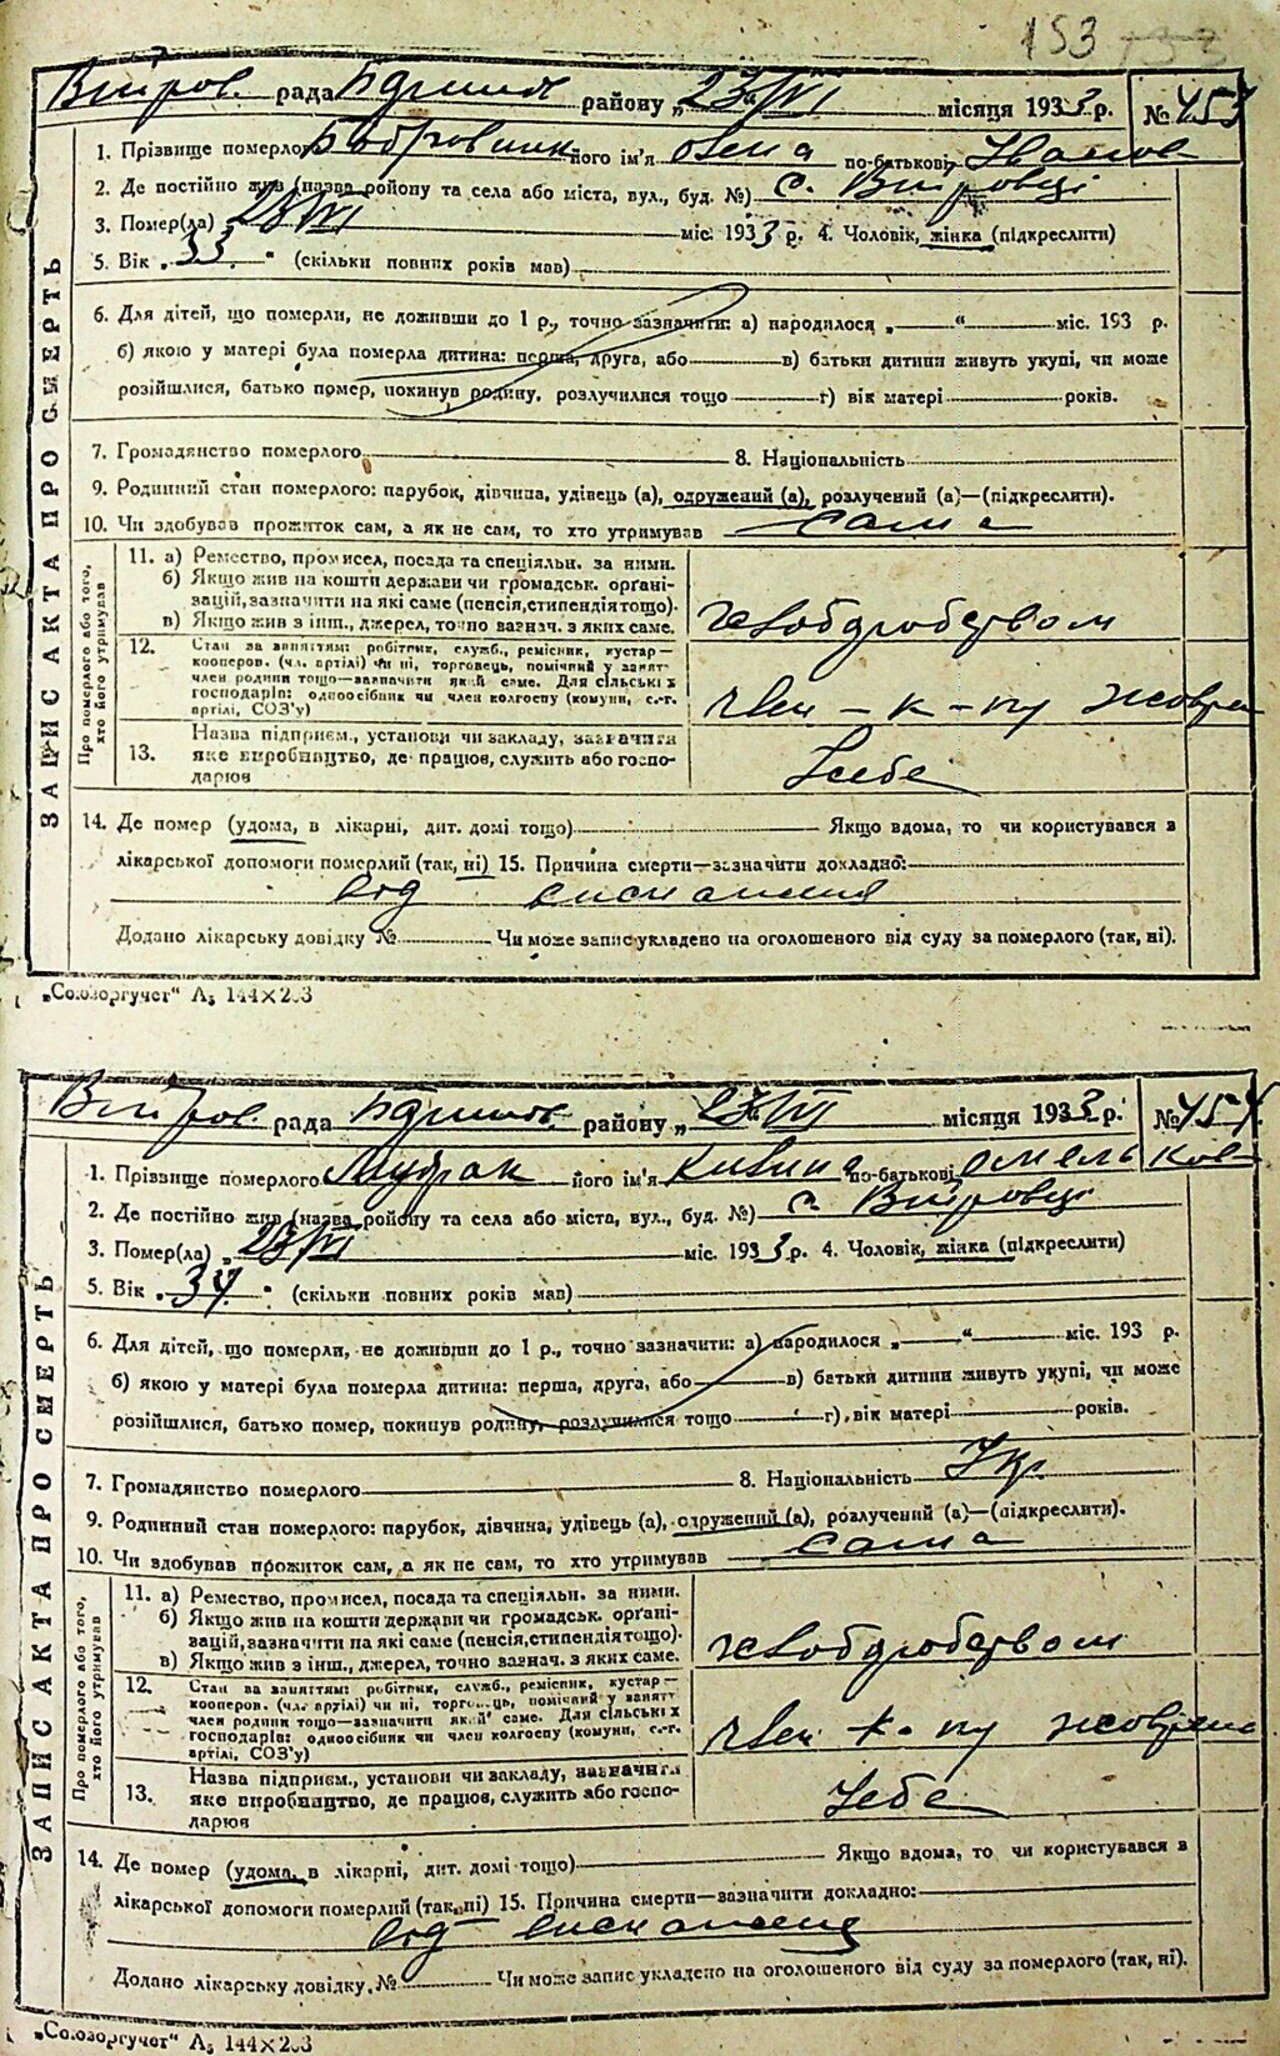 153
рада району „23/VI місяця 1933 р. №
1. Прізвище померлого Бобровник його ім'я по-батькові Іванов
2. Де постійно жив (назва ройону та села або міста, вул., буд. №) с. Вітровці
3. Помер(ла) 23/VI міс. 1933 р. 4. Чоловік, жінка (підкреслити)
5. Вік „33" (скільки повних років мав)
6. Для дітей, що померли, не доживши до 1 р., точно зазначити: а) народилося „ “ міс. 193 р.
б) якою у матері була померла дитина: перша, друга, або в) батьки дитини живуть укупі, чи може
розійшлися, батько помер, покинув родину, розлучилися тощо г) вік матері років.
7. Громадянство померлого 8. Національність
9. Родинний стан померлого: парубок, дівчина, удівець (а), одружений (а), розлучений (а)—(підкреслити).
10. Чи здобував прожиток сам, а як не сам, то хто утримував сама
ЗАПИС АКТА ПРО СМЕРТЬ
Про померлого або того, хто його утримував
11. а) Ремество, промисел, посада та спеціяльн. за ними.
б) Якщо жив на кошти держави чи громадськ. орґані-
зацій, зазначити на які саме (пенсія, стипендія тощо).
в) Якщо жив з інш., джерел, точно вазнач. з яких саме.
хліборобством
12. Стан за заняттям: робітник, служб., ремісник, кустар—
кооперов. (чл. артілі) чи ні, торговець, помічний у занят
член родини тощо—зазначити який саме. Для сільськіх
господарів: одноосібник чи член колгоспу (комуни, с.-г.
артілі, СОЗ'у)
член – к – пу
13. Назва підприєм., установи чи закладу, зазначити
яке виробництво, де працює, служить або госпо-
дарює
себе
14. Де помер (удома, в лікарні, дит. домі тощо) Якщо вдома, то чи користувався з
лікарської допомоги померлий (так, ні) 15. Причина смерти—зазначити докладно:
від виснаження
Додано лікарську довідку № Чи може запис укладено на оголошеного від суду за померлого (так, ні).
„Союзоргучет“ А5 144×203
рада району „23/VI місяця 1933 р. №
1. Прізвище померлого його ім'я по-батькові Омельков
2. Де постійно жив (назва ройону та села або міста, вул., буд. №) с. Вітровці
3. Помер(ла) „23/VI міс. 1933 р. 4. Чоловік, жінка (підкреслити)
5. Вік „34" (скільки повних років мав)
6. Для дітей, що померли, не доживши до 1 р., точно зазначити: а) народилося „ “ міс. 193 р.
б) якою у матері була померла дитина: перша, друга, або в) батьки дитини живуть укупі, чи може
розійшлися, батько помер, покинув родину, розлучилися тощо г) вік матері років.
7. Громадянство померлого 8. Національність Укр.
9. Родинний стан померлого: парубок, дівчина, удівець (а), одружений (а), розлучений (а)—(підкреслити).
10. Чи здобував прожиток сам, а як не сам, то хто утримував сама
ЗАПИС АКТА ПРО СМЕРТЬ
Про померлого або того, хто його утримував
11. а) Ремество, промисел, посада та спеціяльн. за ними.
б) Якщо жив на кошти держави чи громадськ. орґані-
зацій, зазначити на які саме (пенсія, стипендія тощо).
в) Якщо жив з інш., джерел, точно вазнач. з яких саме.
хліборобством
12. Стан за заняттям: робітник, служб., ремісник, кустар—
кооперов. (чл. артілі) чи ні, торговець, помічний у занят
член родини тощо—зазначити який саме. Для сільськіх
господарів: одноосібник чи член колгоспу (комуни, с.-г.
артілі, СОЗ'у)
член к-пу
13. Назва підприєм., установи чи закладу, зазначити
яке виробництво, де працює, служить або госпо-
дарює
себе
14. Де помер (удома, в лікарні, дит. домі тощо) Якщо вдома, то чи користувався з
лікарської допомоги померлий (так, ні) 15. Причина смерти—зазначити докладно:
від виснаження
Додано лікарську довідку № Чи може запис укладено на оголошеного від суду за померлого (так, ні).
„Союзоргучет“ А5 144×203